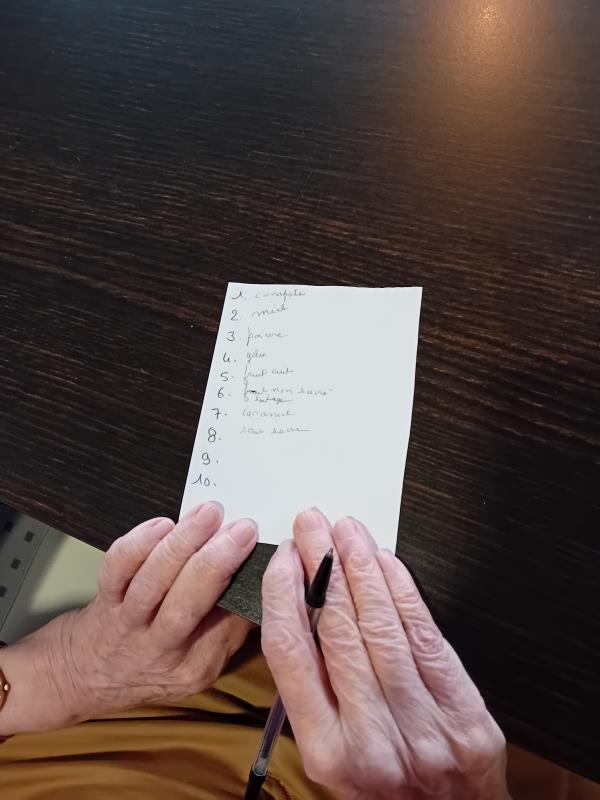 1. compote
2. miel
3. poivre
4. gelée
5. fruit cuit
6. fruit non sucré
7. caramel
8. sans sucre
9.
10.